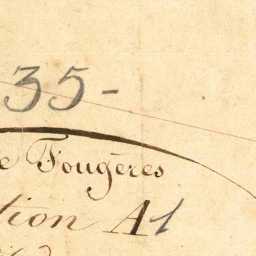 35-
e Fougères
tion A1